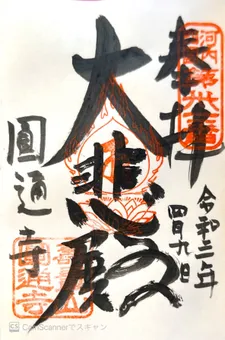 奉拝
大悲殿
圓通寺
令和二年
四月九日
CamScannerでスキャン